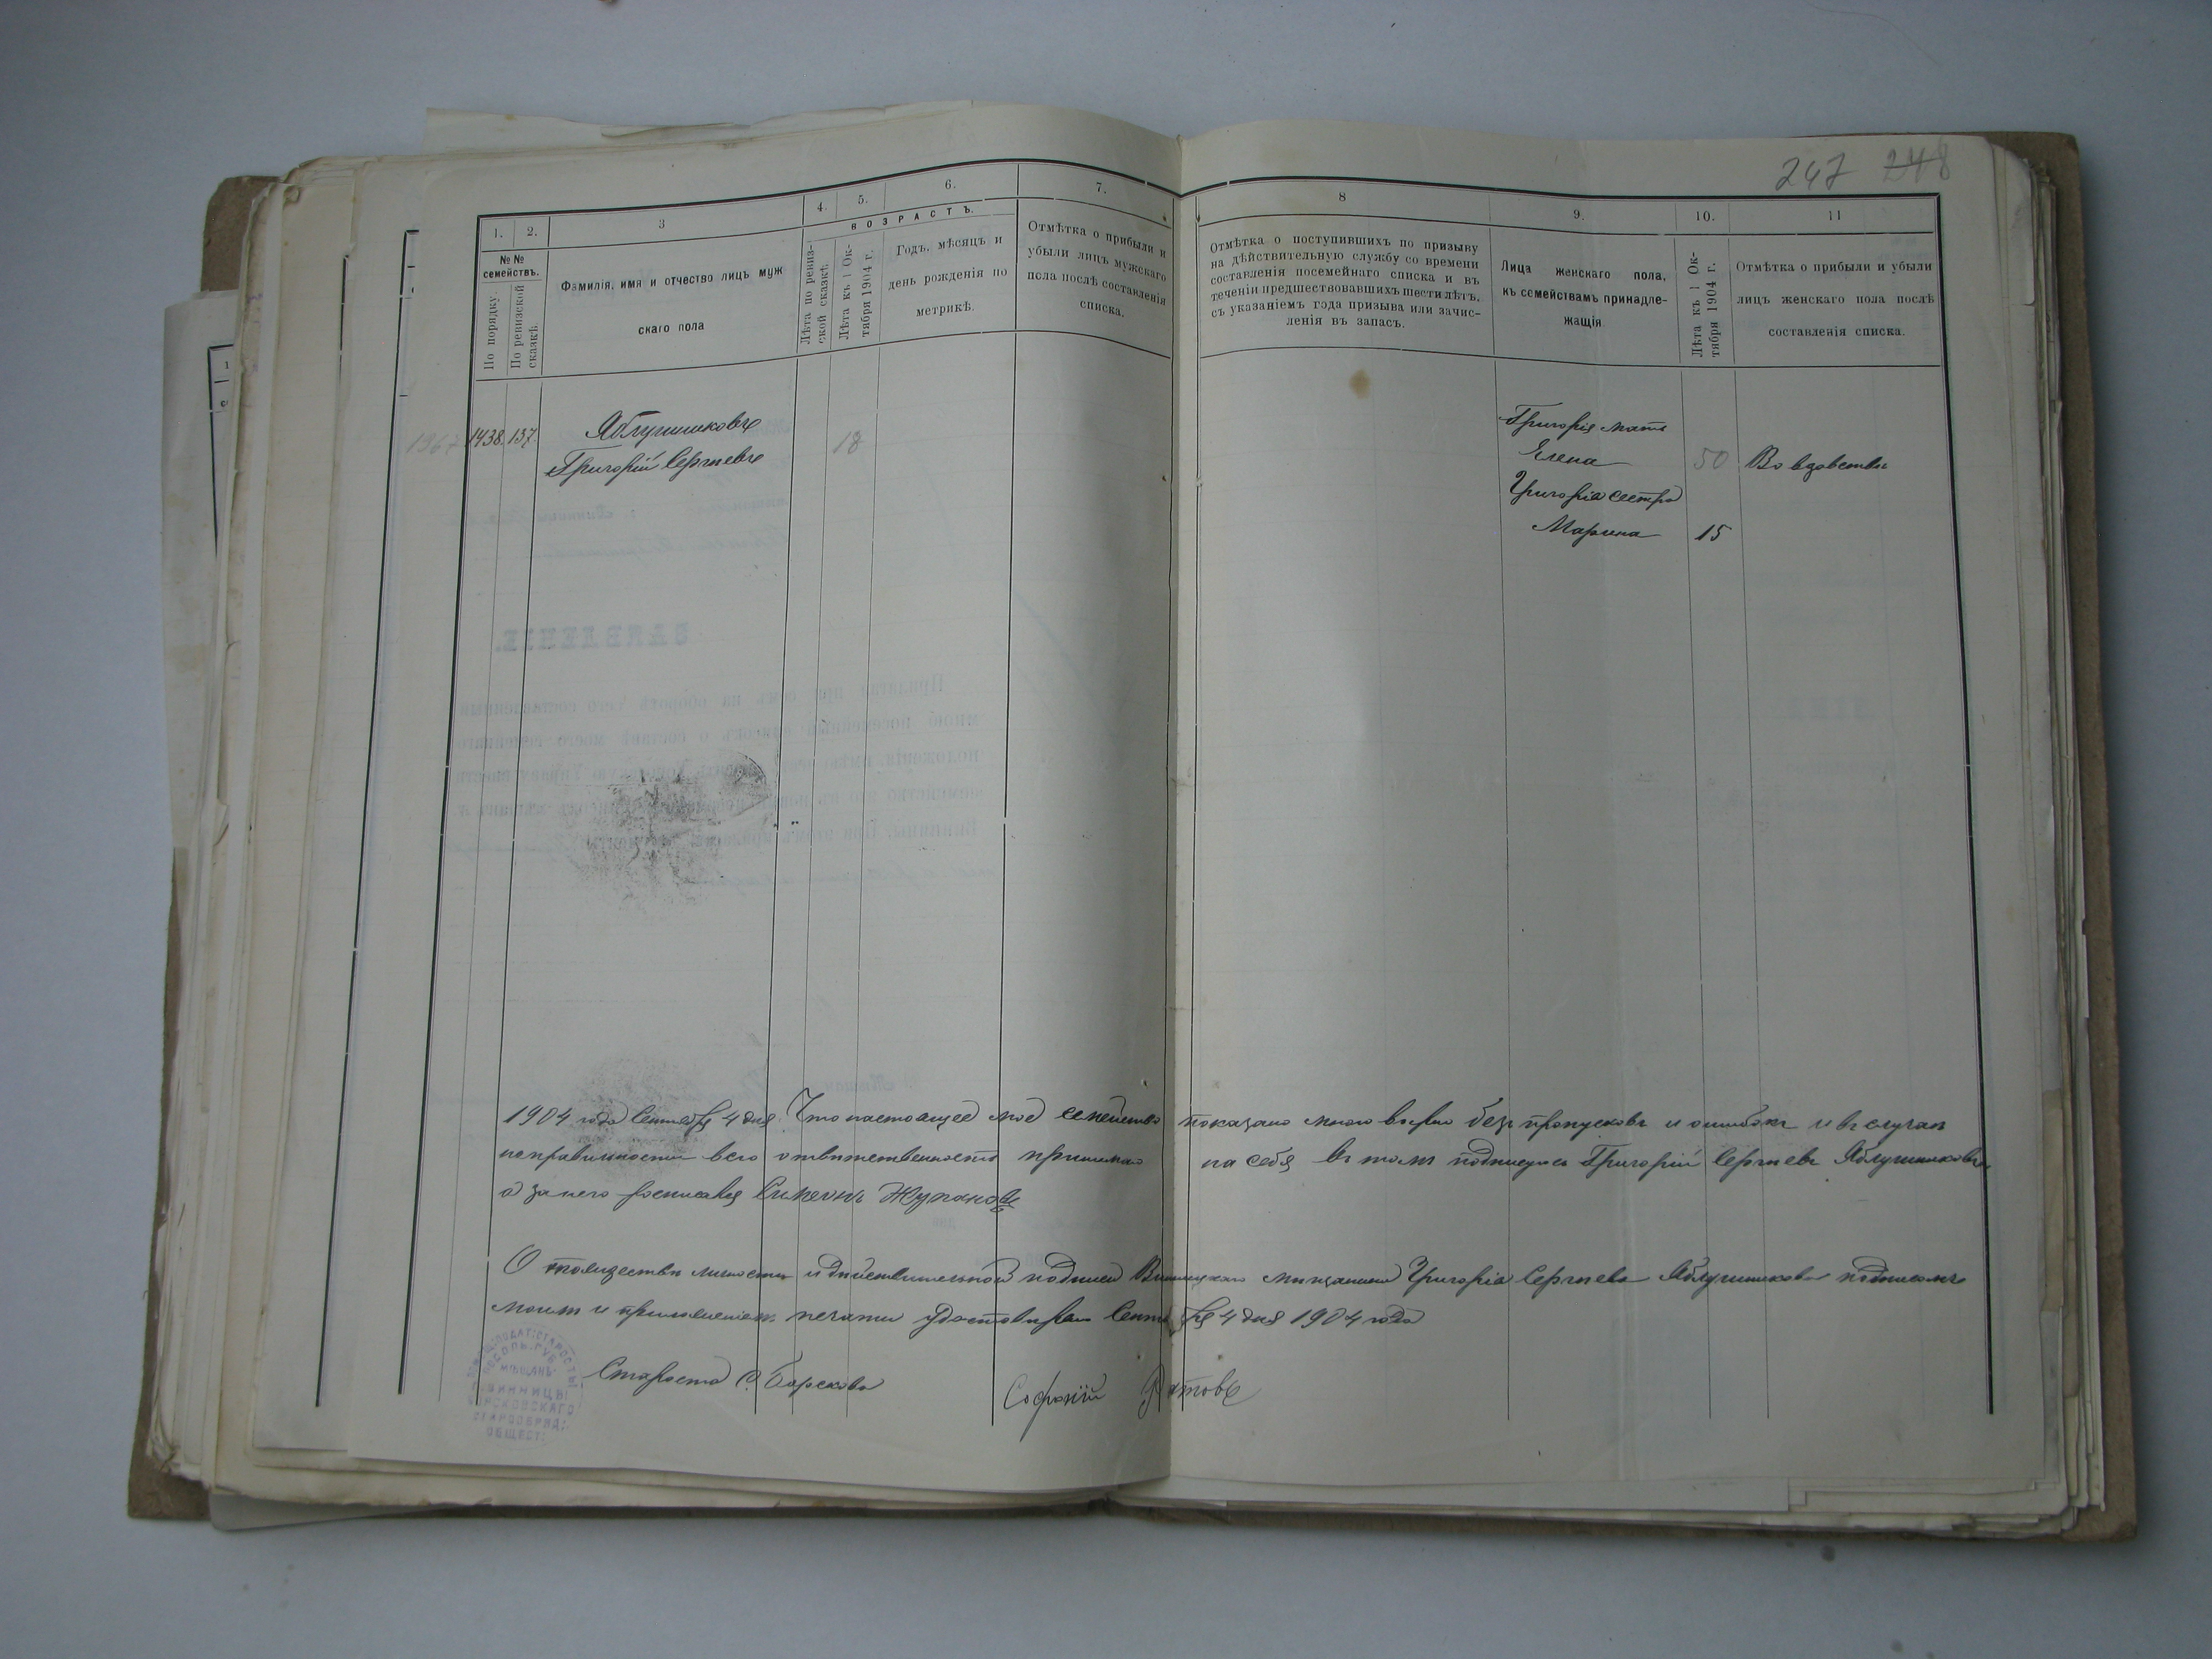 247 248
1. 2. 3 4. 5. 6. 7. 8 9. 10. 11
№ № семействъ.
По порядку.
По ревизской сказкѣ.
Фамилія, имя и отчество лицъ муж
скаго пола
ВОЗРАСТЪ.
Лѣта по ревиз-
ской сказкѣ.
Лѣта къ 1 Ок-
тября 1904 г.
Годъ, мѣсяцъ и
день рожденія по
метрикѣ.
Отмѣтка о прибыли и
убыли лицъ мужскаго
пола послѣ составленія
списка.
Отмѣтка о поступившихъ по призыву
на дѣйствительную службу со времени
составленія посемейнаго списка и въ
теченіи предшествовавшихъ шести лѣтъ,
съ указаніемъ года призыва или зачис-
ленія въ запасъ.
Лица женскаго пола,
къ семействамъ принадле-
жащія
Лѣта къ 1 Ок-
тября 1904 г.
Отмѣтка о прибыли и убыли
лицъ женскаго пола послѣ
составленія списка.
1438. 137.
Григорій Сергѣевъ
18
Григорія мать
Елена 50 Во вдовствѣ
Григорія сестра
Марина 15
ЗАЯВЛЕНІЕ.
1904 года Сентября 4 дня Что настоящее мое семейство показано мною вѣрно безъ пропусковъ и ошибокъ и въ случаѣ
неправильности всю отвѣтственность принимаю на себя въ томъ подписуюсь Григорій Сергѣевъ
а за него росписался Симеонъ Жупановъ
О тождествѣ личности и дѣйствительной подписи Винницкаго мѣщанина Григорія Сергѣева подписомъ
моимъ и приложеніемъ печати удостовѣряю Сентября 4 дня 1904 года
Староста С. Борсковъ Софроній